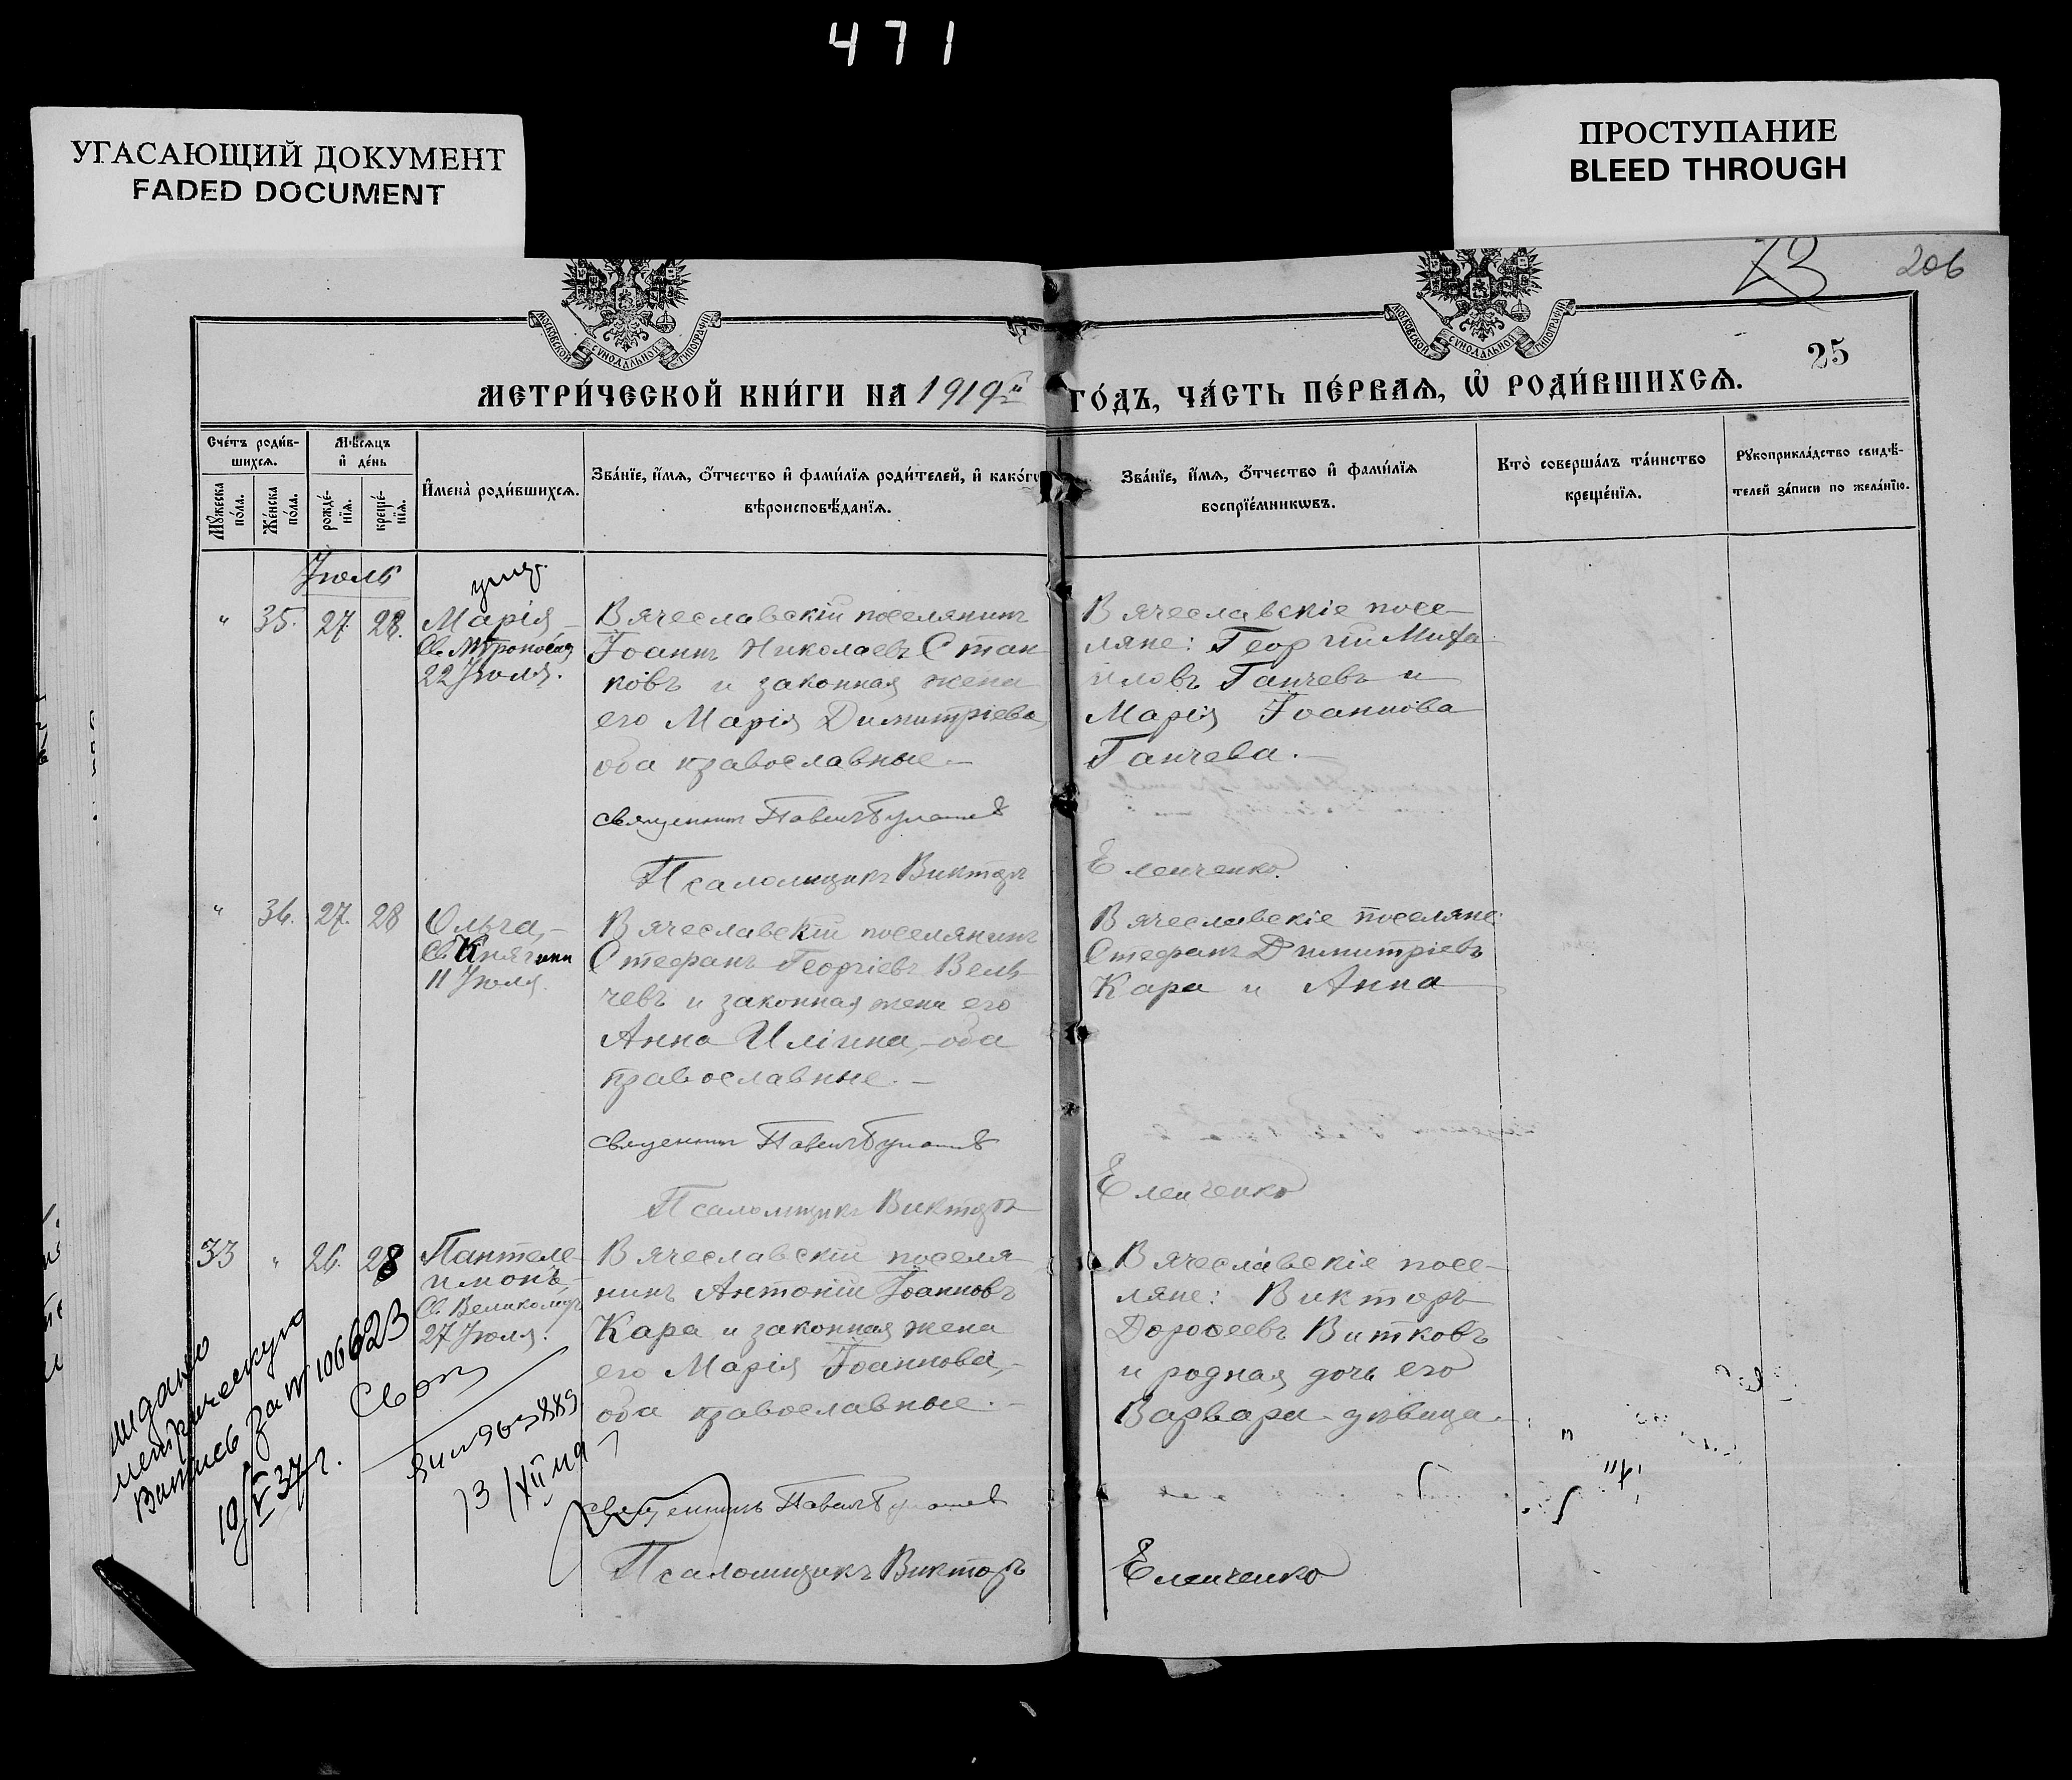 471
УГАСАЮЩИЙ ДОКУМЕНТ
FADED DOCUMENT
ПРОСТУПАНИЕ
BLEED THROUGH
206
25
МОСКОВСКОЙ СѴНОДАЛЬНОЙ ТИПОГРАФІИ
МОСКОВСКОЙ СѴНОДАЛЬНОЙ ТИПОГРАФІИ
МЕТРИ́ЧЕСКОЙ КНИ́ГИ НА 1919й ГО́ДЪ, ЧА́СТЬ ПЕ́РВАЯ, Ѡ҆ РОДИ́ВШИХСЯ.
Сче́тъ роди́в-
шихся.
Мѣ́сяцъ
и҆ де́нь
Мꙋ́жеска по́ла.
Же́нска по́ла.
рожде́-нїя.
креще́-нїя.
И҆мена̀ роди́вшихся.
Зва́нїе, и҆́мя, ѻ҆́тчество и҆ фами́лїя роди́телей, и҆ како́гѡ
вѣроисповѣ́данїя.
Зва́нїе, и҆́мя, ѻ҆́тчество и҆ фами́лїя
воспрїе́мникѡвъ.
Кто̀ соверша́лъ та́инство
креще́нїя.
Рꙋкоприкла́дство свидѣ́-
телей за́писи по жела́нїю.
Іюль
" 35. 27. 28.
Марія
22 Іюля.
Вячеславскій поселянинъ
Іоаннъ Николаевъ Стан
ковъ и законная жена
его Марія Димитріева,
оба православные.
Вячеславскіе посе-
ляне: Георгій Миха
иловъ Ганчевъ и
Марія Іоаннова
Ганчева.
священникъ Павелъ
Псаломщикъ Викторъ Еленченко
" 36. 27. 28
Ольга,
Св. Княгини
11 Іюля
Вячеславскій поселянинъ
Стефанъ Георгіевъ Вель-
чевъ и законная жена его
Анна Иліина, оба
православные.
Вячеславскіе поселяне:
Стефанъ Димитріевъ
Кара и Анна
священникъ Павелъ
Псаломщикъ Викторъ Еленченко
33 " 26. 28
Пантеле
имонъ,
Св. Великомуч
27 Іюля.
Вячеславскій поселя-
нинъ Антоній Іоанновъ
Кара и законная жена
его Марія Іоаннова,
оба православные.
Вячеславскіе посе-
ляне: Викторъ
Дороѳеевъ Витковъ
и родная дочь его
Варвара дѣвица.
священникъ Павелъ
Псаломщикъ Викторъ Еленченко
видано
метрическую
Выпись за № 106623
19/V 37 г.